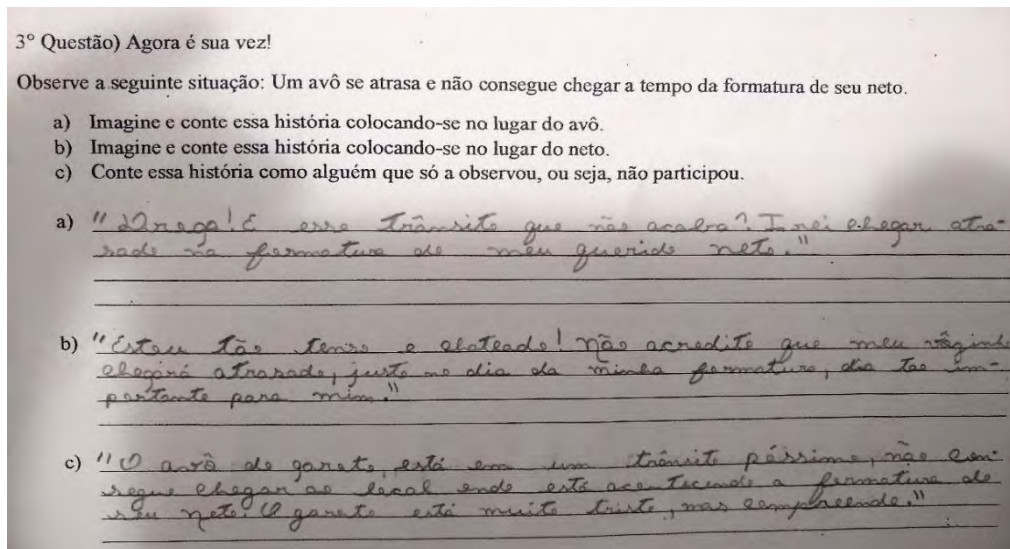 3º Questão) Agora é sua vez!
Observe a seguinte situação: Um avô se atrasa e não consegue chegar a tempo da formatura de seu neto.
a) Imagine e conte essa história colocando-se no lugar do avô.
b) Imagine e conte essa história colocando-se no lugar do neto.
c) Conte essa história como alguém que só a observou, ou seja, não participou.
a) "Droga! E esse trânsito que não acaba? Irei chegar atra-
sado na formatura do meu querido neto."
b) "Estou tão tenso e chateado! Não acredito que meu
chegará atrasado, justo no dia da minha formatura, dia tão im-
portante para mim."
c) "O avô do garoto, está em um trânsito péssimo, não con-
segue chegar ao local onde está acontecendo a formatura do
seu neto. O garoto está muito triste, mas compreende."